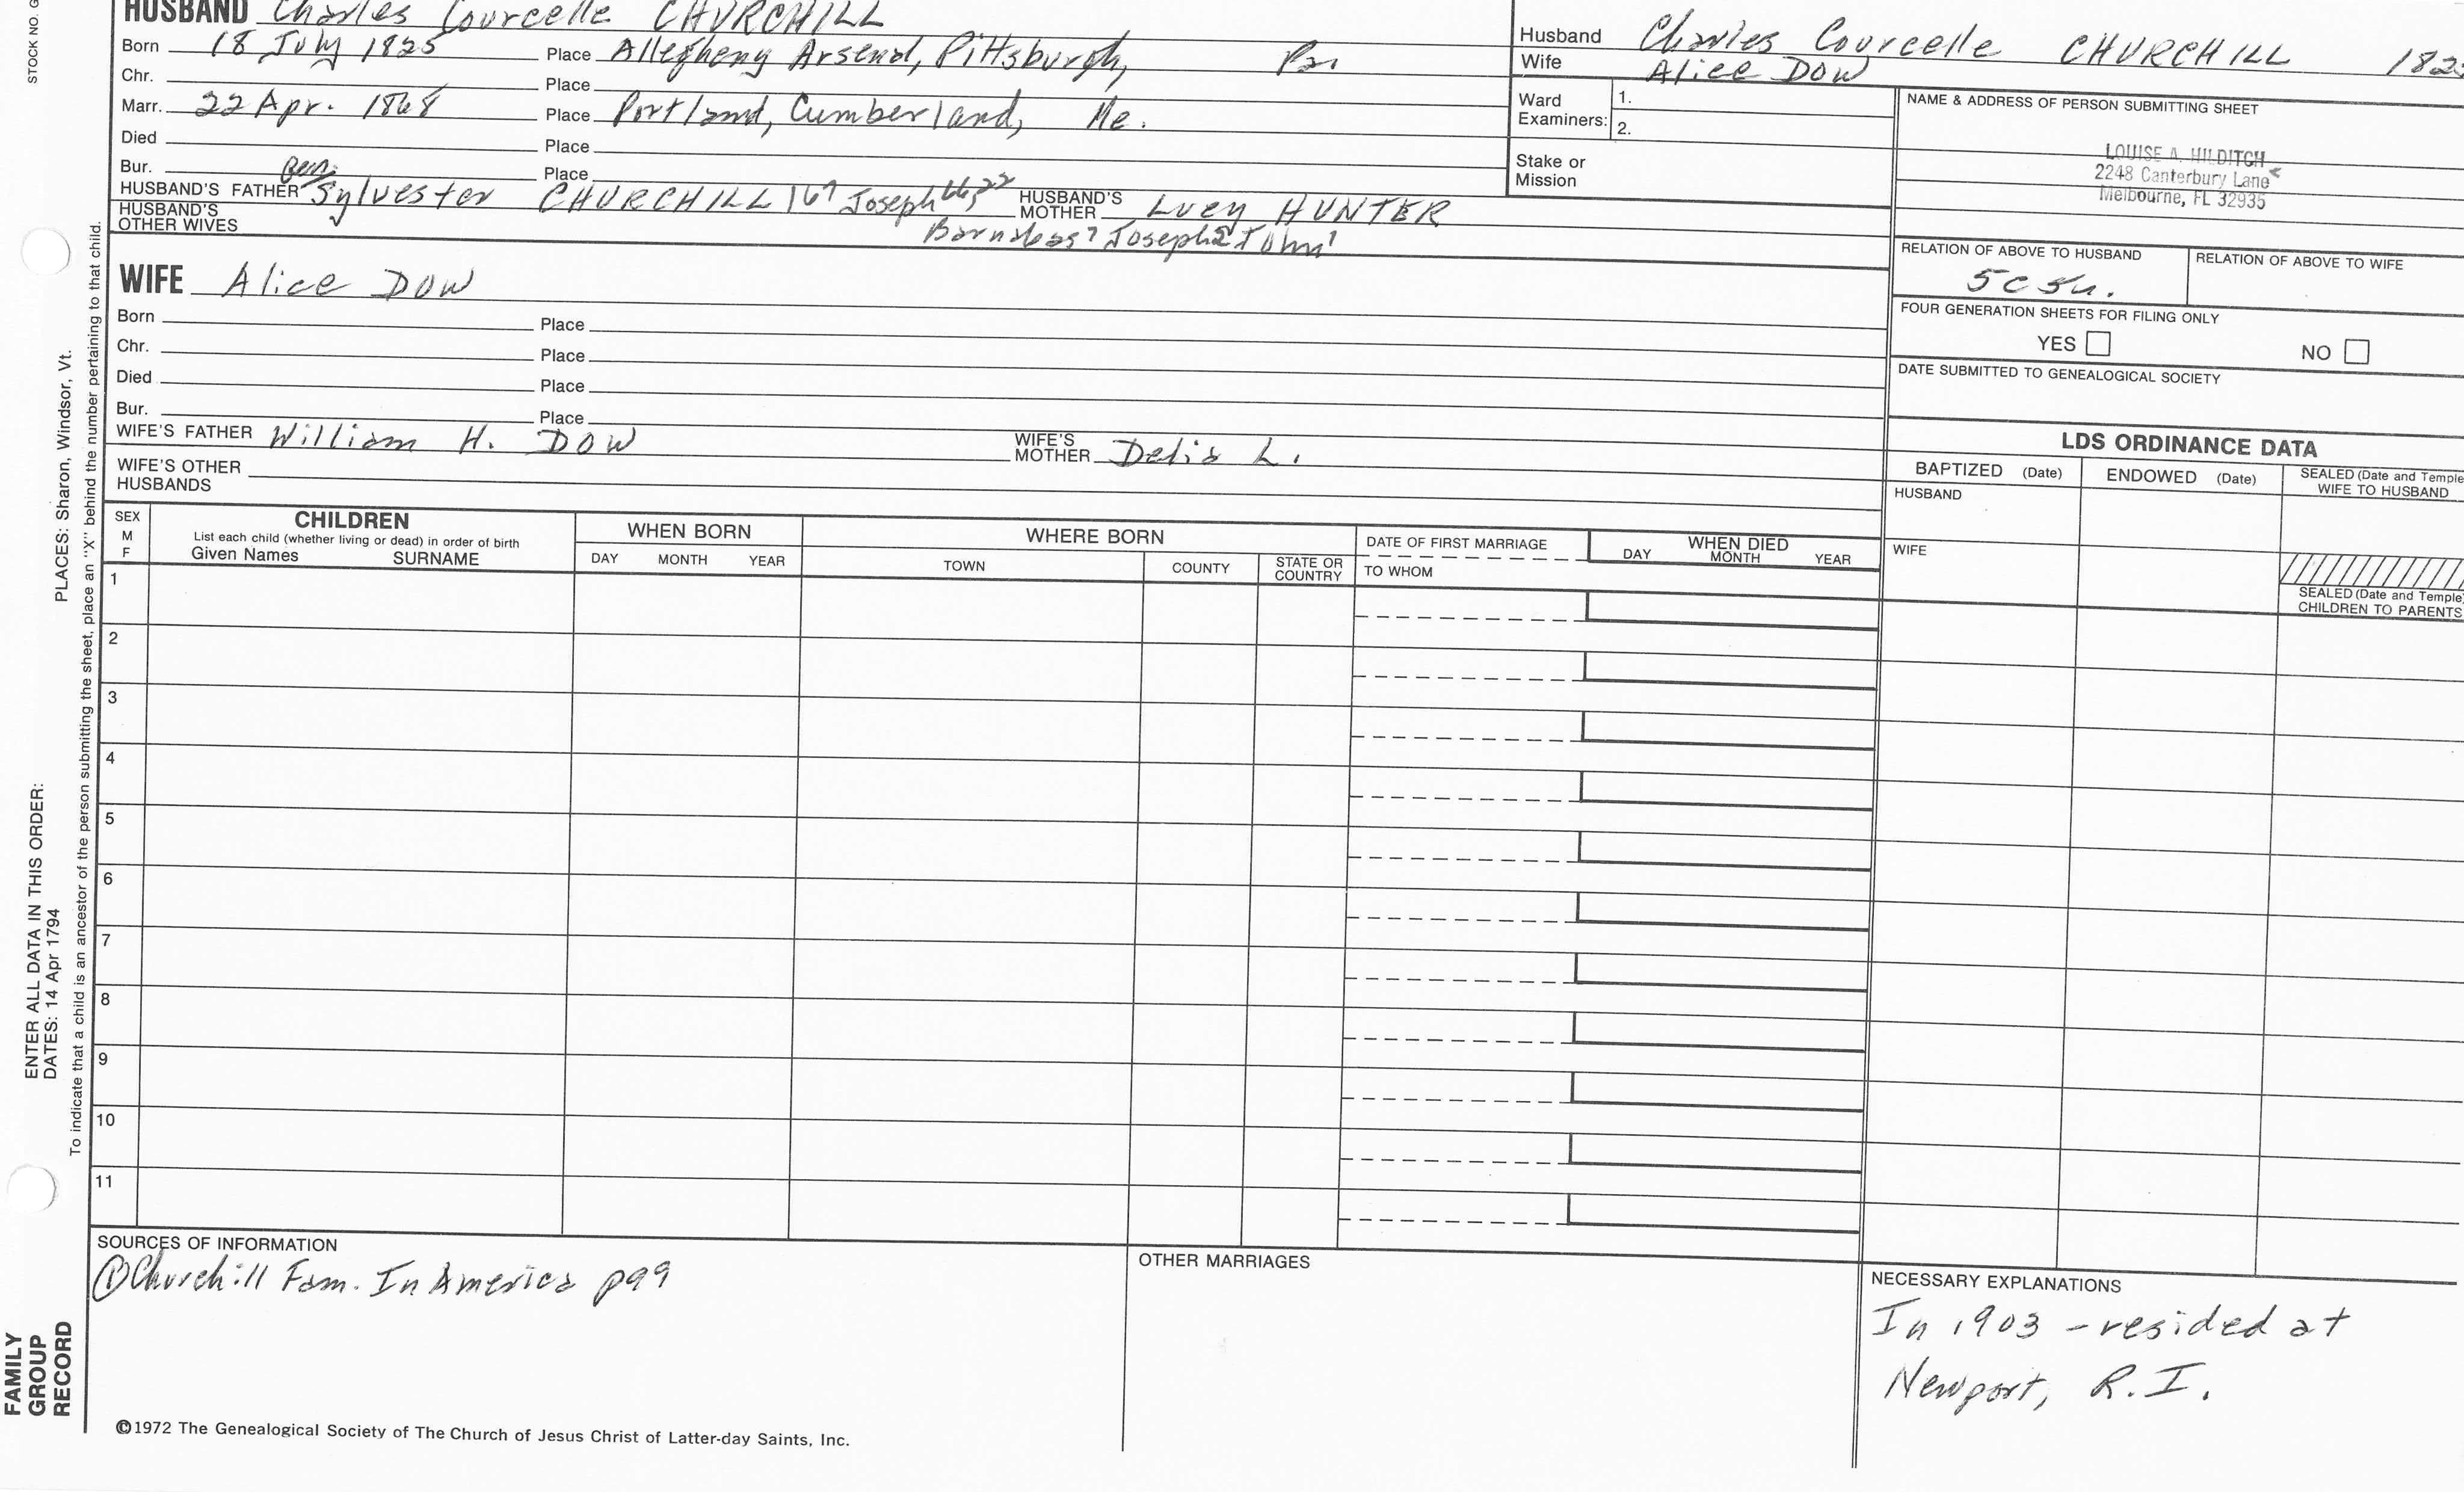 HUSBAND Charles Courcelle CHURCHILL
Born 18 July 1825 Place Allegheny Arsenal, Pittsburgh, Pa.
Chr. Place
Marr. 22 Apr. 1868 Place Portland, Cumberland, Me.
Died Place
Bur. Place
Gen.
HUSBAND'S FATHER Sylvester CHURCHILL Joseph HUSBAND'S MOTHER Lucy HUNTER
HUSBAND'S OTHER WIVES
Barnabas Joseph John
WIFE Alice DOW
Born Place
Chr. Place
Died Place
Bur. Place
WIFE'S FATHER William H. DOW WIFE'S MOTHER Delia L.
WIFE'S OTHER HUSBANDS
Husband Charles Courcelle CHURCHILL
Wife Alice DOW
Ward Examiners: 1.
2.
Stake or Mission
NAME & ADDRESS OF PERSON SUBMITTING SHEET
LOUISE A. HILDITCH
2248 Canterbury Lane
Melbourne, FL 32935
RELATION OF ABOVE TO HUSBAND RELATION OF ABOVE TO WIFE
FOUR GENERATION SHEETS FOR FILING ONLY
YES NO
DATE SUBMITTED TO GENEALOGICAL SOCIETY
LDS ORDINANCE DATA
BAPTIZED (Date) ENDOWED (Date) SEALED (Date and Temple
WIFE TO HUSBAND
HUSBAND
WIFE
SEALED (Date and Temple)
CHILDREN TO PARENTS
SEX
M
F
CHILDREN
List each child (whether living or dead) in order of birth
Given Names SURNAME
WHEN BORN
DAY MONTH YEAR
WHERE BORN
TOWN COUNTY STATE OR COUNTRY
DATE OF FIRST MARRIAGE
TO WHOM
WHEN DIED
DAY MONTH YEAR
1
2
3
4
5
6
7
8
9
10
11
SOURCES OF INFORMATION
① Churchill Fam. In America p99
OTHER MARRIAGES
NECESSARY EXPLANATIONS
In 1903 - resided at
Newport, R.I.
©1972 The Genealogical Society of The Church of Jesus Christ of Latter-day Saints, Inc.
STOCK NO.
PLACES: Sharon, Windsor, Vt.
ENTER ALL DATA IN THIS ORDER:
DATES: 14 Apr 1794
To indicate that a child is an ancestor of the person submitting the sheet, place an "X" behind the number pertaining to that child.
FAMILY
GROUP
RECORD